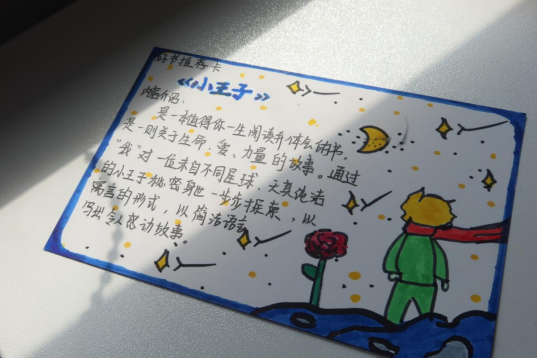 好书推荐卡
《小王子》
内容介绍:
是一本值得你一生阅读并体会的书,
是一则关于生命、爱、力量的故事。通过
"我"对一位来自不同星球,天真纯洁
的小王子秘密身世一步步探索,以
寓言的形式,以简洁语言
写出令人感动故事